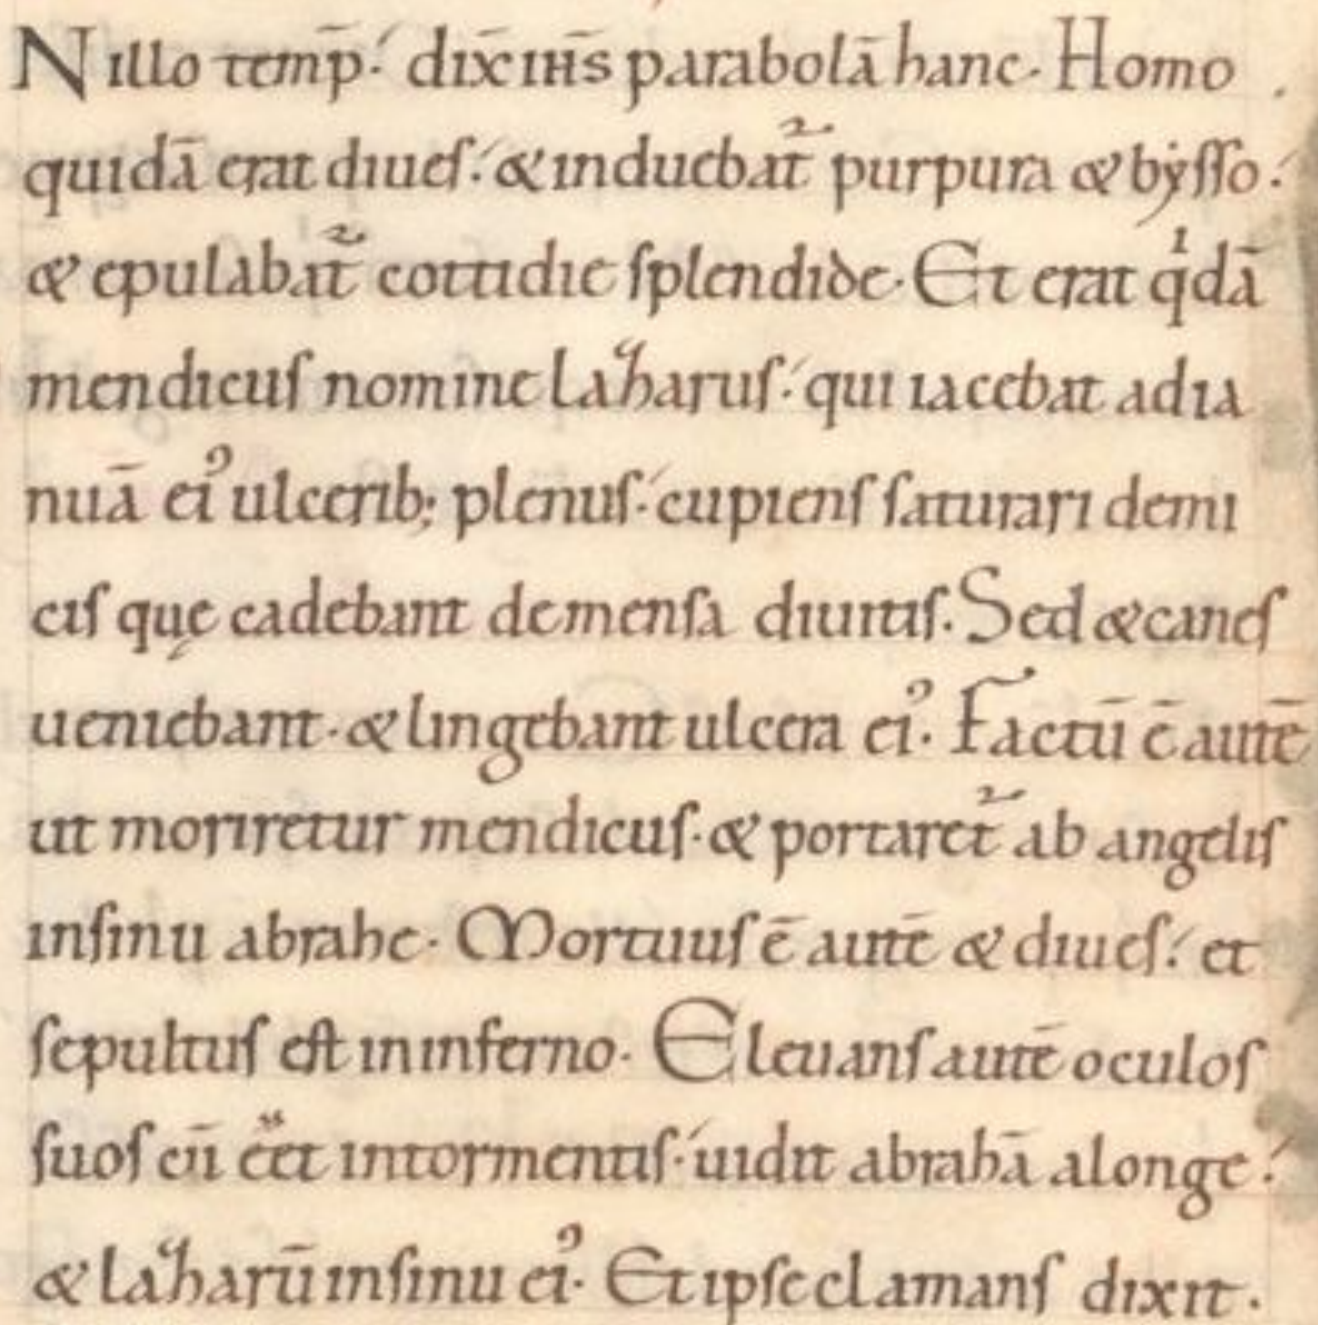 N illo temp̄. dix̄ ih̄s parabolā hanc. Homo
quidā erat diues. & induebat᷑ purpura & bẏsso.
& epulabat᷑ cottidie splendide. Et erat qͥdā
mendicus nomine lazharus. qui iacebat ad ia
nuā eiꝰ ulcerib; plenus. cupiens saturari de mi
cis quę cadebant de mensa diuitis. Sed & canes
ueniebant. & lingebant ulcera eiꝰ. Factū ē autē
ut moriretur mendicus. & portaret᷑ ab angelis
in sinu abrahe. Mortuus ē autē & diues. et
sepultus est in inferno. Eleuans autē oculos
suos cū eēt in tormentis. uidit abrahā a longe.
& lazharū in sinu eiꝰ. Et ipse clamans dixit.